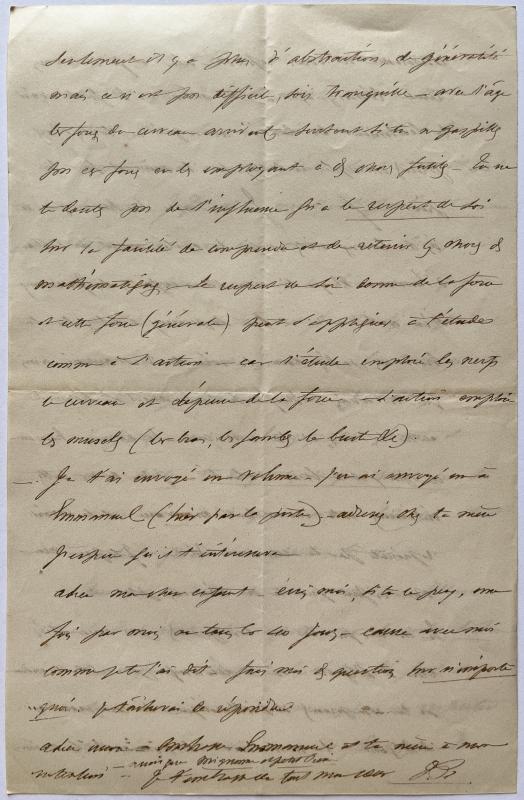 Seulement il y a plus d'abstraction, de généralité
mais ce n'est pas difficile, sois tranquille – avec l'âge
les forces du cerveau arrivent – surtout si tu ne gaspilles
pas ces forces en les employant à des choses futiles – Tu ne
te doutes pas de l'influence qu'a le respect de soi
sur la facilité de comprendre et de retenir les choses des
mathématiques – Le respect de soi donne de la force
et cette force (générale) peut s'appliquer à l'étude
comme à l'action – car l'étude emploie les nerfs
le cerveau et dépense de la force – L'action emploie
les muscles (les bras, les jambes le buste &c).
– Je t'ai envoyé un volume – J'en ai envoyé un à
Emmanuel (hier par la poste) – adressé chez ta mère
J'espère qu'il t'intéressera
adieu mon cher enfant – écris moi, si tu le peux, une
fois par mois ou tous les 40 jours – cause avec moi
comme je te l'ai dit – fais moi des questions sur n'importe
quoi – je tâcherai de répondre
adieu encore – Embrasse Emmanuel et ta mère à mon
intention – ainsi que Mignonne
Je t'embrasse de tout mon cœur